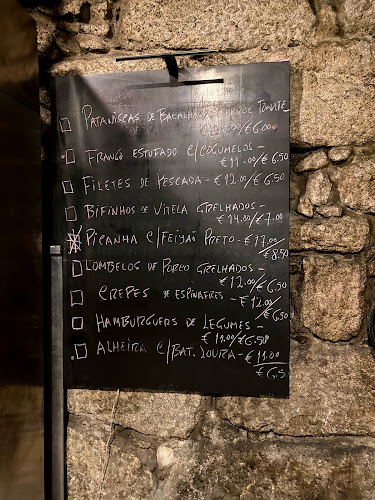 Pataniscas de Bacalhau Tomate
€6.00
Frango Estufado c/Cogumelos –
€11.00/€6.50
Filetes de Pescada – €12.00/€6.50
Bifinhos de Vitela Grelhados –
€14.00/€7.00
Picanha c/Feijão Preto – €17.00/
€8.50
Lombelos de Porco Grelhados –
€12.00/€6.50
Crepes de Espinafres – €12.00/
€6.50
Hamburguers de Legumes –
€11.00/€6.50
Alheira c/Bat. Loura – €11.00/
€6.5